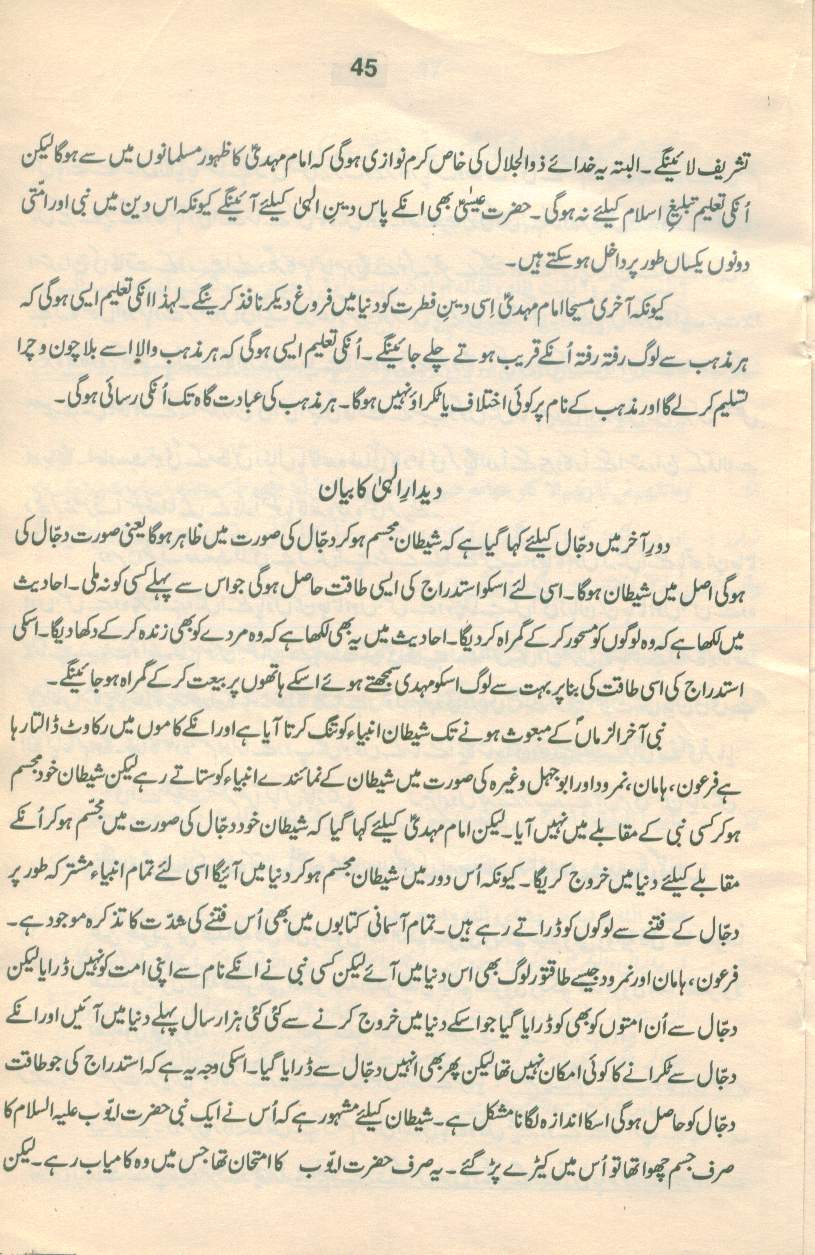 45
تشریف لائینگے۔ البتہ یہ خدائے ذوالجلال کی خاص کرم نوازی ہوگی کہ امام مہدیؑ کا ظہور مسلمانوں میں سے ہوگا لیکن
اُنکی تعلیم تبلیغِ اسلام کیلئے نہ ہوگی۔ حضرت عیسٰیؑ بھی انکے پاس دینِ الہٰی کیلئے آئینگے کیونکہ اس دین میں نبی اور امّتی
دونوں یکساں طور پر داخل ہوسکتے ہیں۔
کیونکہ آخری مسیحا امام مہدیؑ اِسی دینِ فطرت کو دنیا میں فروغ دیکر نافذ کرینگے۔ لہذٰا انکی تعلیم ایسی ہوگی کہ
ہر مذہب سے لوگ رفتہ رفتہ اُنکے قریب ہوتے چلے جائینگے۔ اُنکی تعلیم ایسی ہوگی کہ ہر مذہب والا اسے بلا چون و چرا
تسلیم کرلے گا اور مذہب کے نام پر کوئی اختلاف یا ٹکراؤ نہیں ہوگا۔ ہر مذہب کی عبادت گاہ تک اُنکی رسائی ہوگی۔
دیدارِ الہٰی کا بیان
دورِ آخر میں دجّال کیلئے کہا گیا ہے کہ شیطان مجسم ہوکر دجّال کی صورت میں ظاہر ہوگا یعنی صورت دجّال کی
ہوگی اصل میں شیطان ہوگا۔ اسی لئے اسکو استدراج کی ایسی طاقت حاصل ہوگی جو اس سے پہلے کسی کو نہ ملی۔ احادیث
میں لکھا ہے کہ وہ لوگوں کو مسحور کرکے گمراہ کردیگا۔ احادیث میں یہ بھی لکھا ہے کہ وہ مردے کو بھی زندہ کرکے دکھا دیگا۔ اسکی
استدراج کی اسی طاقت کی بنا پر بہت سے لوگ اسکو مہدی سمجھتے ہوئے اسکے ہاتھوں پر بیعت کرکے گمراہ ہوجائینگے۔
نبی آخر الزماںؐ کے مبعوث ہونے تک شیطان انبیاء کو تنگ کرتا آیا ہے اور انکے کاموں میں رکاوٹ ڈالتا رہا
ہے فرعون، ہامان، نمرود اور ابوجہل وغیرہ کی صورت میں شیطان کے نمائندے انبیاء کو ستاتے رہے لیکن شیطان خود مجسم
ہوکر کسی نبی کے مقابلے میں نہیں آیا۔ لیکن امام مہدیؑ کیلئے کہا گیا کہ شیطان خود دجّال کی صورت میں مجسّم ہوکر اُنکے
مقابلے کیلئے دنیا میں خروج کریگا۔ کیونکہ اُس دور میں شیطان مجسم ہوکر دنیا میں آئیگا اسی لئے تمام انبیاء مشترکہ طور پر
دجّال کے فتنے سے لوگوں کو ڈراتے رہے ہیں۔ تمام آسمانی کتابوں میں بھی اُس فتنے کی شدّت کا تذکرہ موجود ہے۔
فرعون، ہامان اور نمرود جیسے طاقتور لوگ بھی اس دنیا میں آئے لیکن کسی نبی نے انکے نام سے اپنی امت کو نہیں ڈرایا لیکن
دجّال سے اُن امتوں کو بھی کو ڈرایا گیا جو اسکے دنیا میں خروج کرنے سے کئی کئی ہزار سال پہلے دنیا میں آئیں اور انکے
دجّال سے ٹکرانے کا کوئی امکان نہیں تھا لیکن پھر بھی انہیں دجّال سے ڈرایا گیا۔ اسکی وجہ یہ ہے کہ استدراج کی جو طاقت
دجّال کو حاصل ہوگی اسکا اندازہ لگانا مشکل ہے۔ شیطان کیلئے مشہور ہے کہ اُس نے ایک نبی حضرت ایّوب علیہ السلام کا
صرف جسم چھوا تھا تو اُس میں کیڑے پڑ گئے۔ یہ صرف حضرت ایّوب کا امتحان تھا جس میں وہ کامیاب رہے۔ لیکن